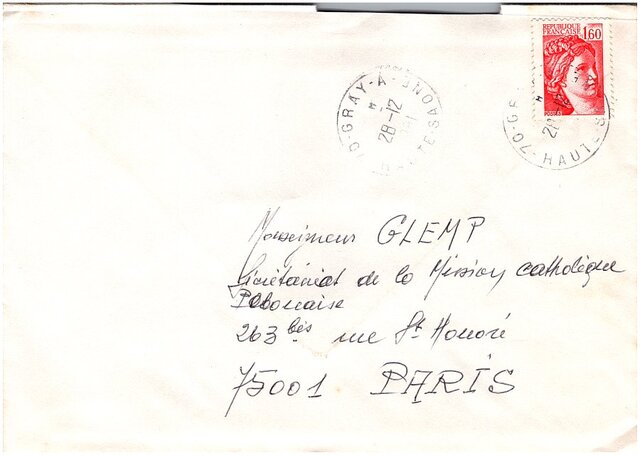 REPUBLIQUE
FRANÇAISE 1,60
70-GRAY-A
28-12
HTE SAONE
70-G
HAUTE-S
Monseigneur GLEMP
Sécrétariat de la Mission catholique
Polonaise
263 bis rue St Honoré
75001 PARIS